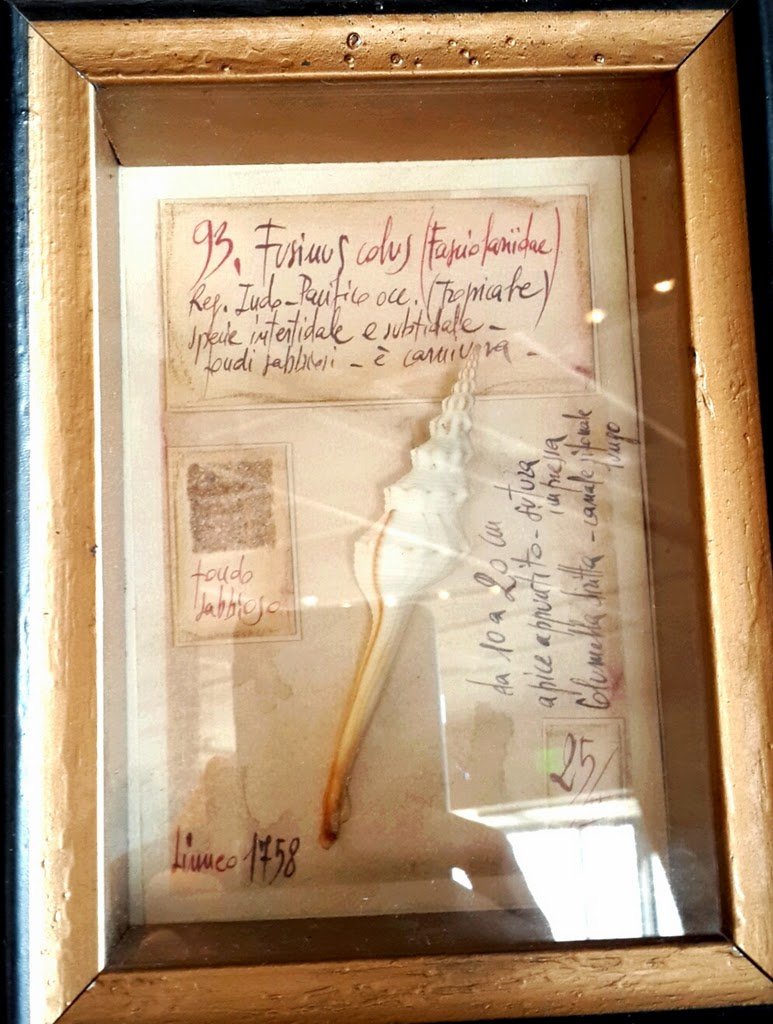 93. Fusinus colus (Fasciolariidae)
Reg. Indo-Pacifico occ. (Tropicale)
specie intertidale e subtidale -
fondi sabbiosi - è carnivora -
fondo
sabbioso
da 10 a 20 cm
apice appuntito - sutura
impressa
Columella dritta - canale sifonale
lungo
25/
Linneo 1758